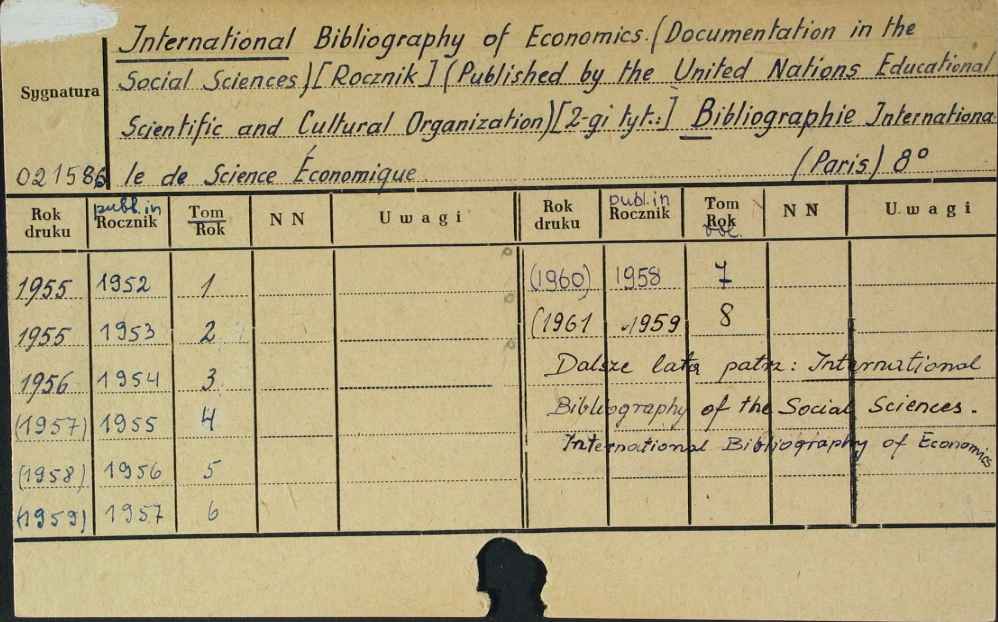 International Bibliography of Economics. (Documentation in the
Social Sciences) [Rocznik] (Published by the United Nations Educational
Sygnatura
Scientific and Cultural Organization) [2-gi tyt.:] Bibliographie Internationa
021586 le de Science Économique (Paris) 8°
Rok druku publ. in Rocznik Tom Rok NN Uwagi Rok druku publ. in Rocznik Tom Rok vol. NN Uwagi
1955 1952 1 (1960) 1958 7
1955 1953 2 (1961 1959 8
1956 1954 3 Dalsze lata patrz: International
(1957) 1955 4 Bibliography of the Social Sciences.
International Bibliography of Economics
(1958) 1956 5
(1959) 1957 6